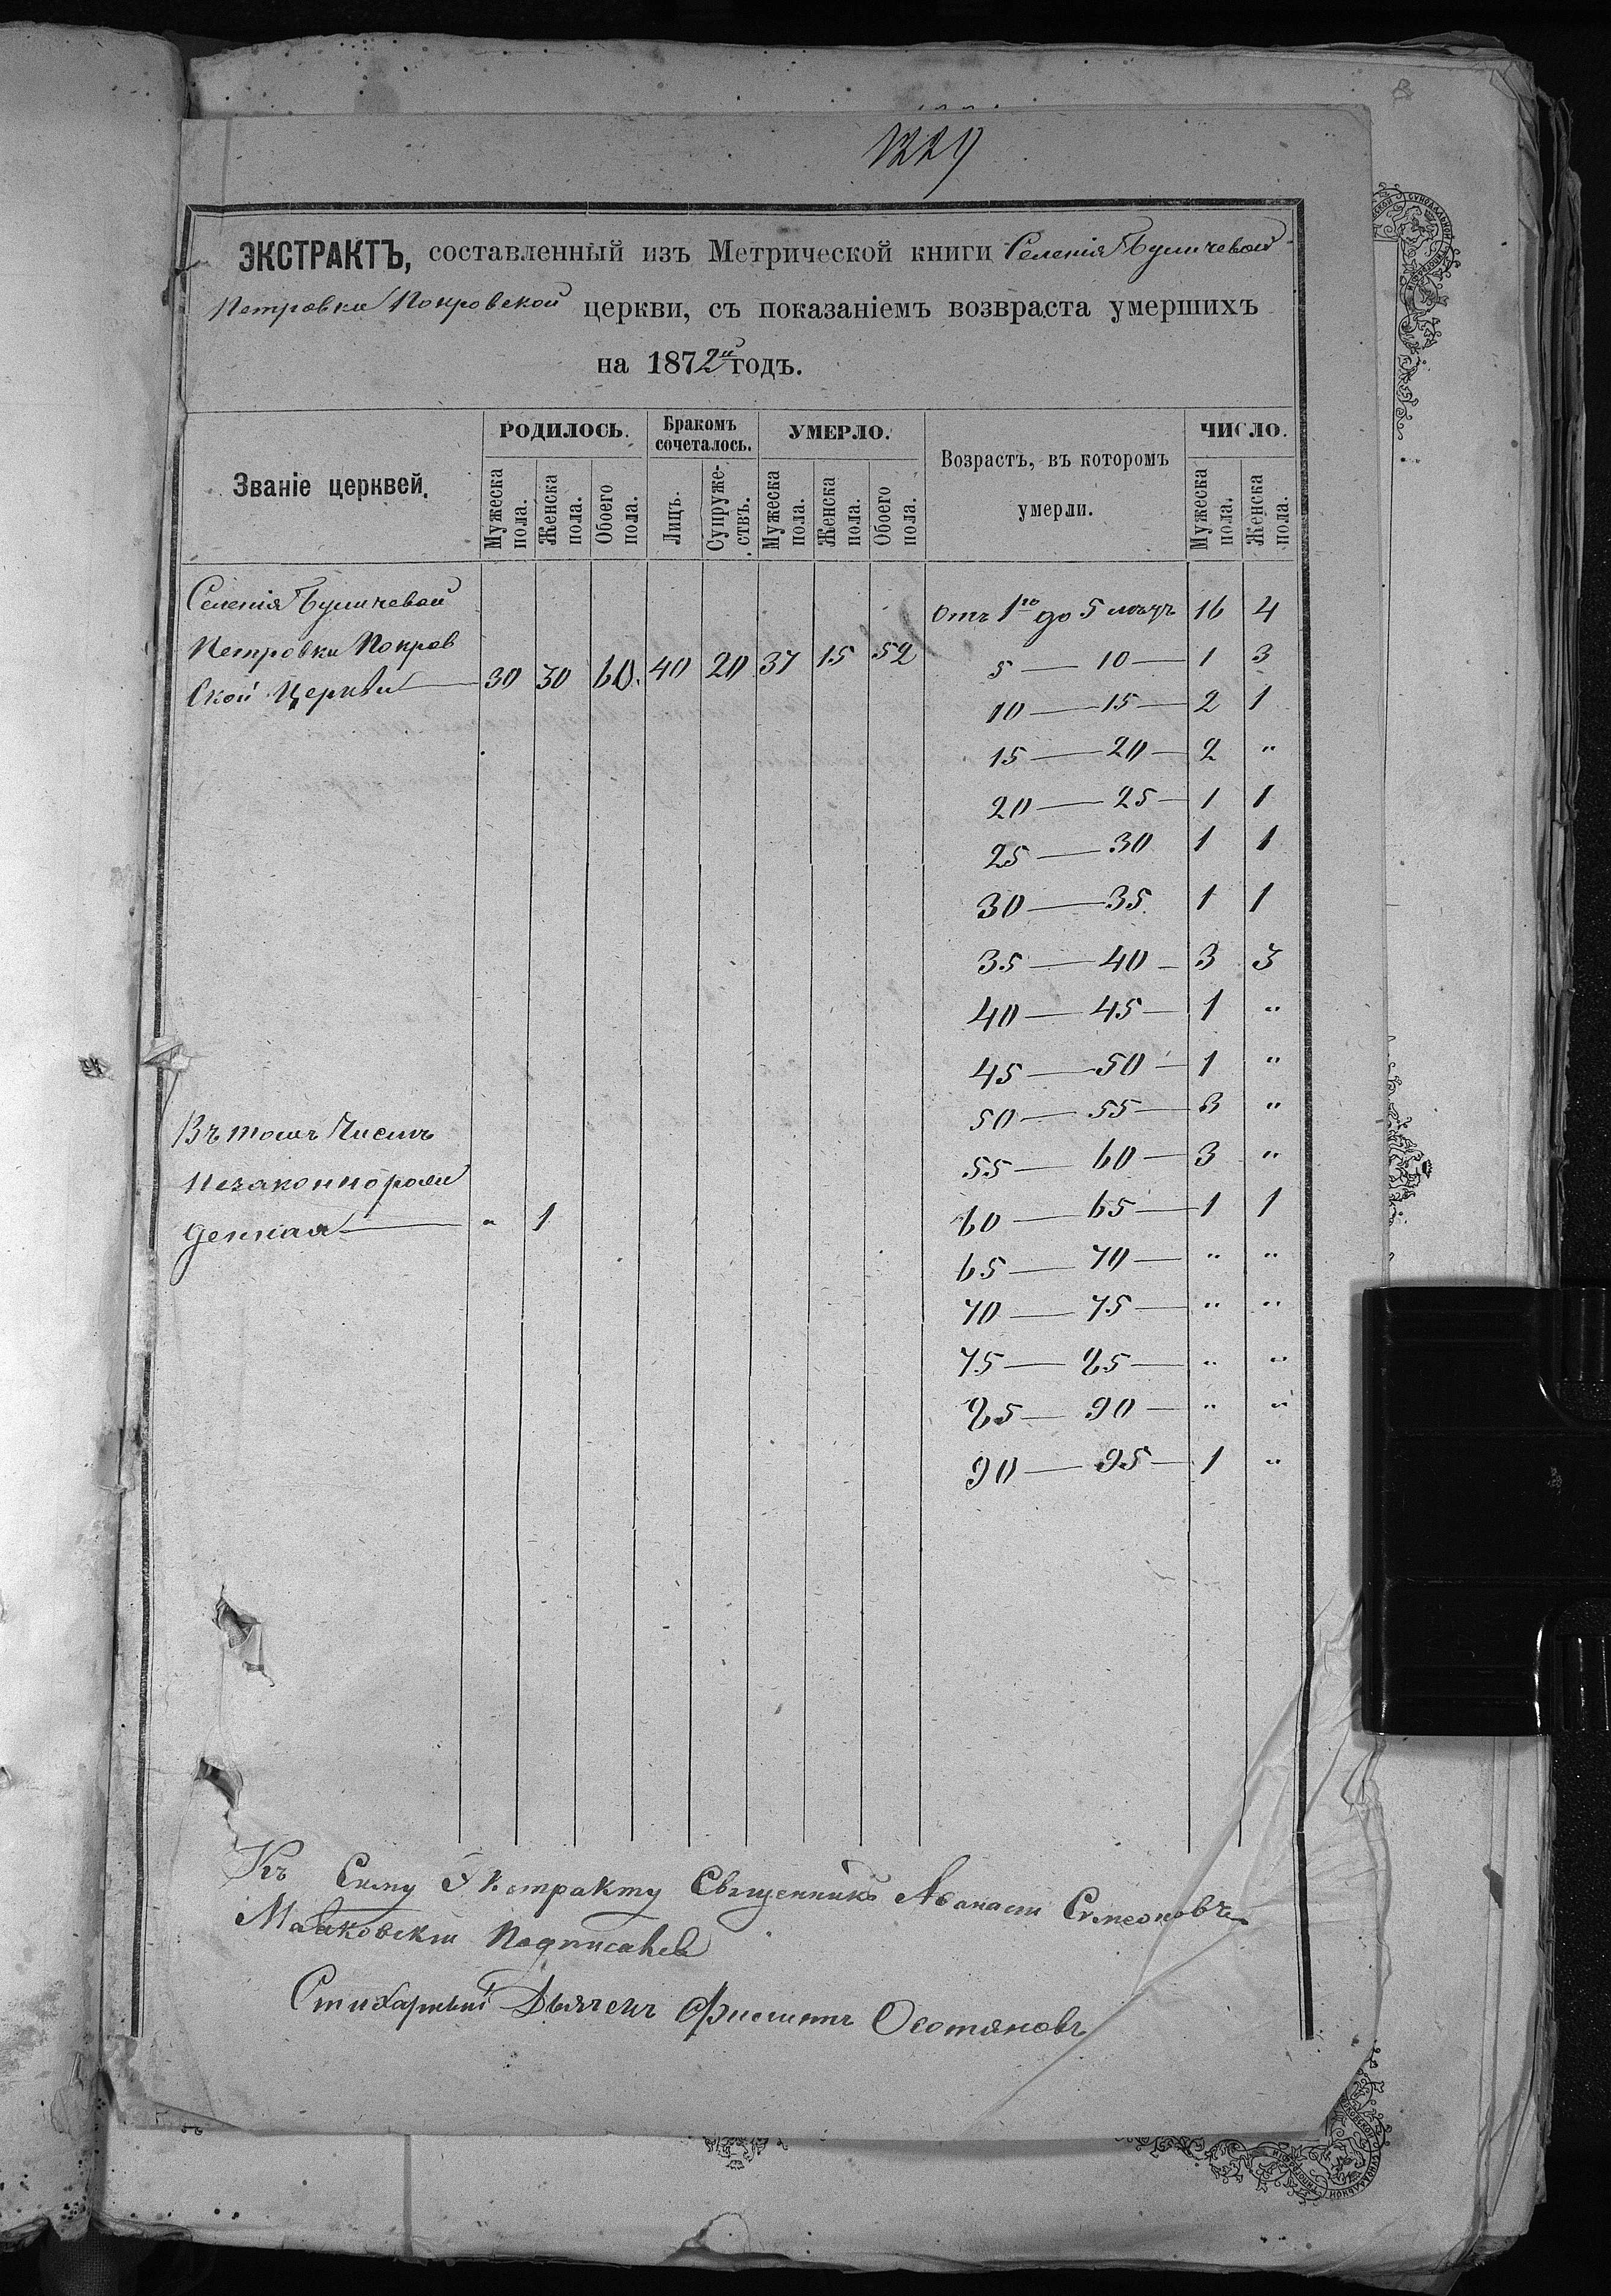 1229
ЭКСТРАКТЪ, составленный изъ Метрической книги Селенія
Петровки Покровской церкви, съ показаніемъ возвраста умершихъ
на 1872й годъ.
Званіе церквей. РОДИЛОСЬ. Бракомъ сочеталось. УМЕРЛО. Возрастъ, въ которомъ умерли. ЧИСЛО.
Мужеска пола. Женска пола. Обоего пола. Лицъ. Супружествъ. Мужеска пола. Женска пола. Обоего пола. Мужеска пола. Женска пола.
Селенія
Петровки Покров
ской Церкви 30 30 60. 40 20 37 15 52
Отъ 1го до 5 16 4
5 — 10 — 1 3
10 — 15 — 2 1
15 — 20 — 2 "
20 — 25 — 1 1
25 — 30 1 1
30 — 35 1 1
35 — 40 — 3 3
40 — 45 — 1 "
45 — 50 — 1 "
50 — 55 — 3 "
55 — 60 — 3 "
60 — 65 — 1 1
65 — 70 — " "
70 — 75 — " "
75 — 85 — " "
85 — 90 — " "
90 — 95 — 1 "
Въ томъ числѣ
незаконнорож
денная — " 1
Къ Сему Экстракту Священникъ Афанасій Симеоновъ
Маяковскій Подписался
Стихарный Дьячекъ Филиппъ